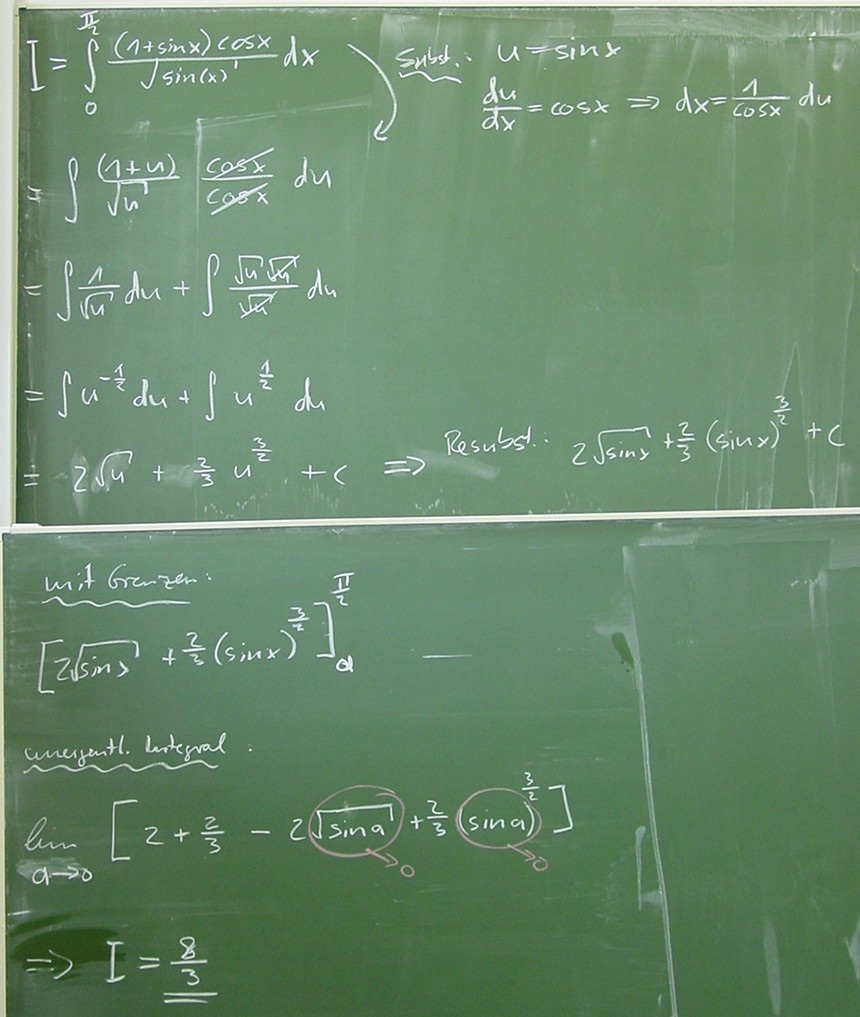 I = ∫₀^(π/2) (1+sinx) cosx / √sin(x) dx
Subst.: u = sinx
du/dx = cosx ⇒ dx = 1/cosx du
= ∫ (1+u)/√u cosx/cosx du
= ∫ 1/√u du + ∫ √u √u/√u du
= ∫ u^(-1/2) du + ∫ u^(1/2) du
= 2√u + 2/3 u^(3/2) + c ⇒ Resubst.: 2√sinx + 2/3 (sinx)^(3/2) + c
mit Grenzen:
[2√sinx + 2/3 (sinx)^(3/2)]_a^(π/2)
uneigentl. Integral:
lim a→0 [2 + 2/3 - 2√sin a + 2/3 (sin a)^(3/2)]
→0 →0
⇒ I = 8/3